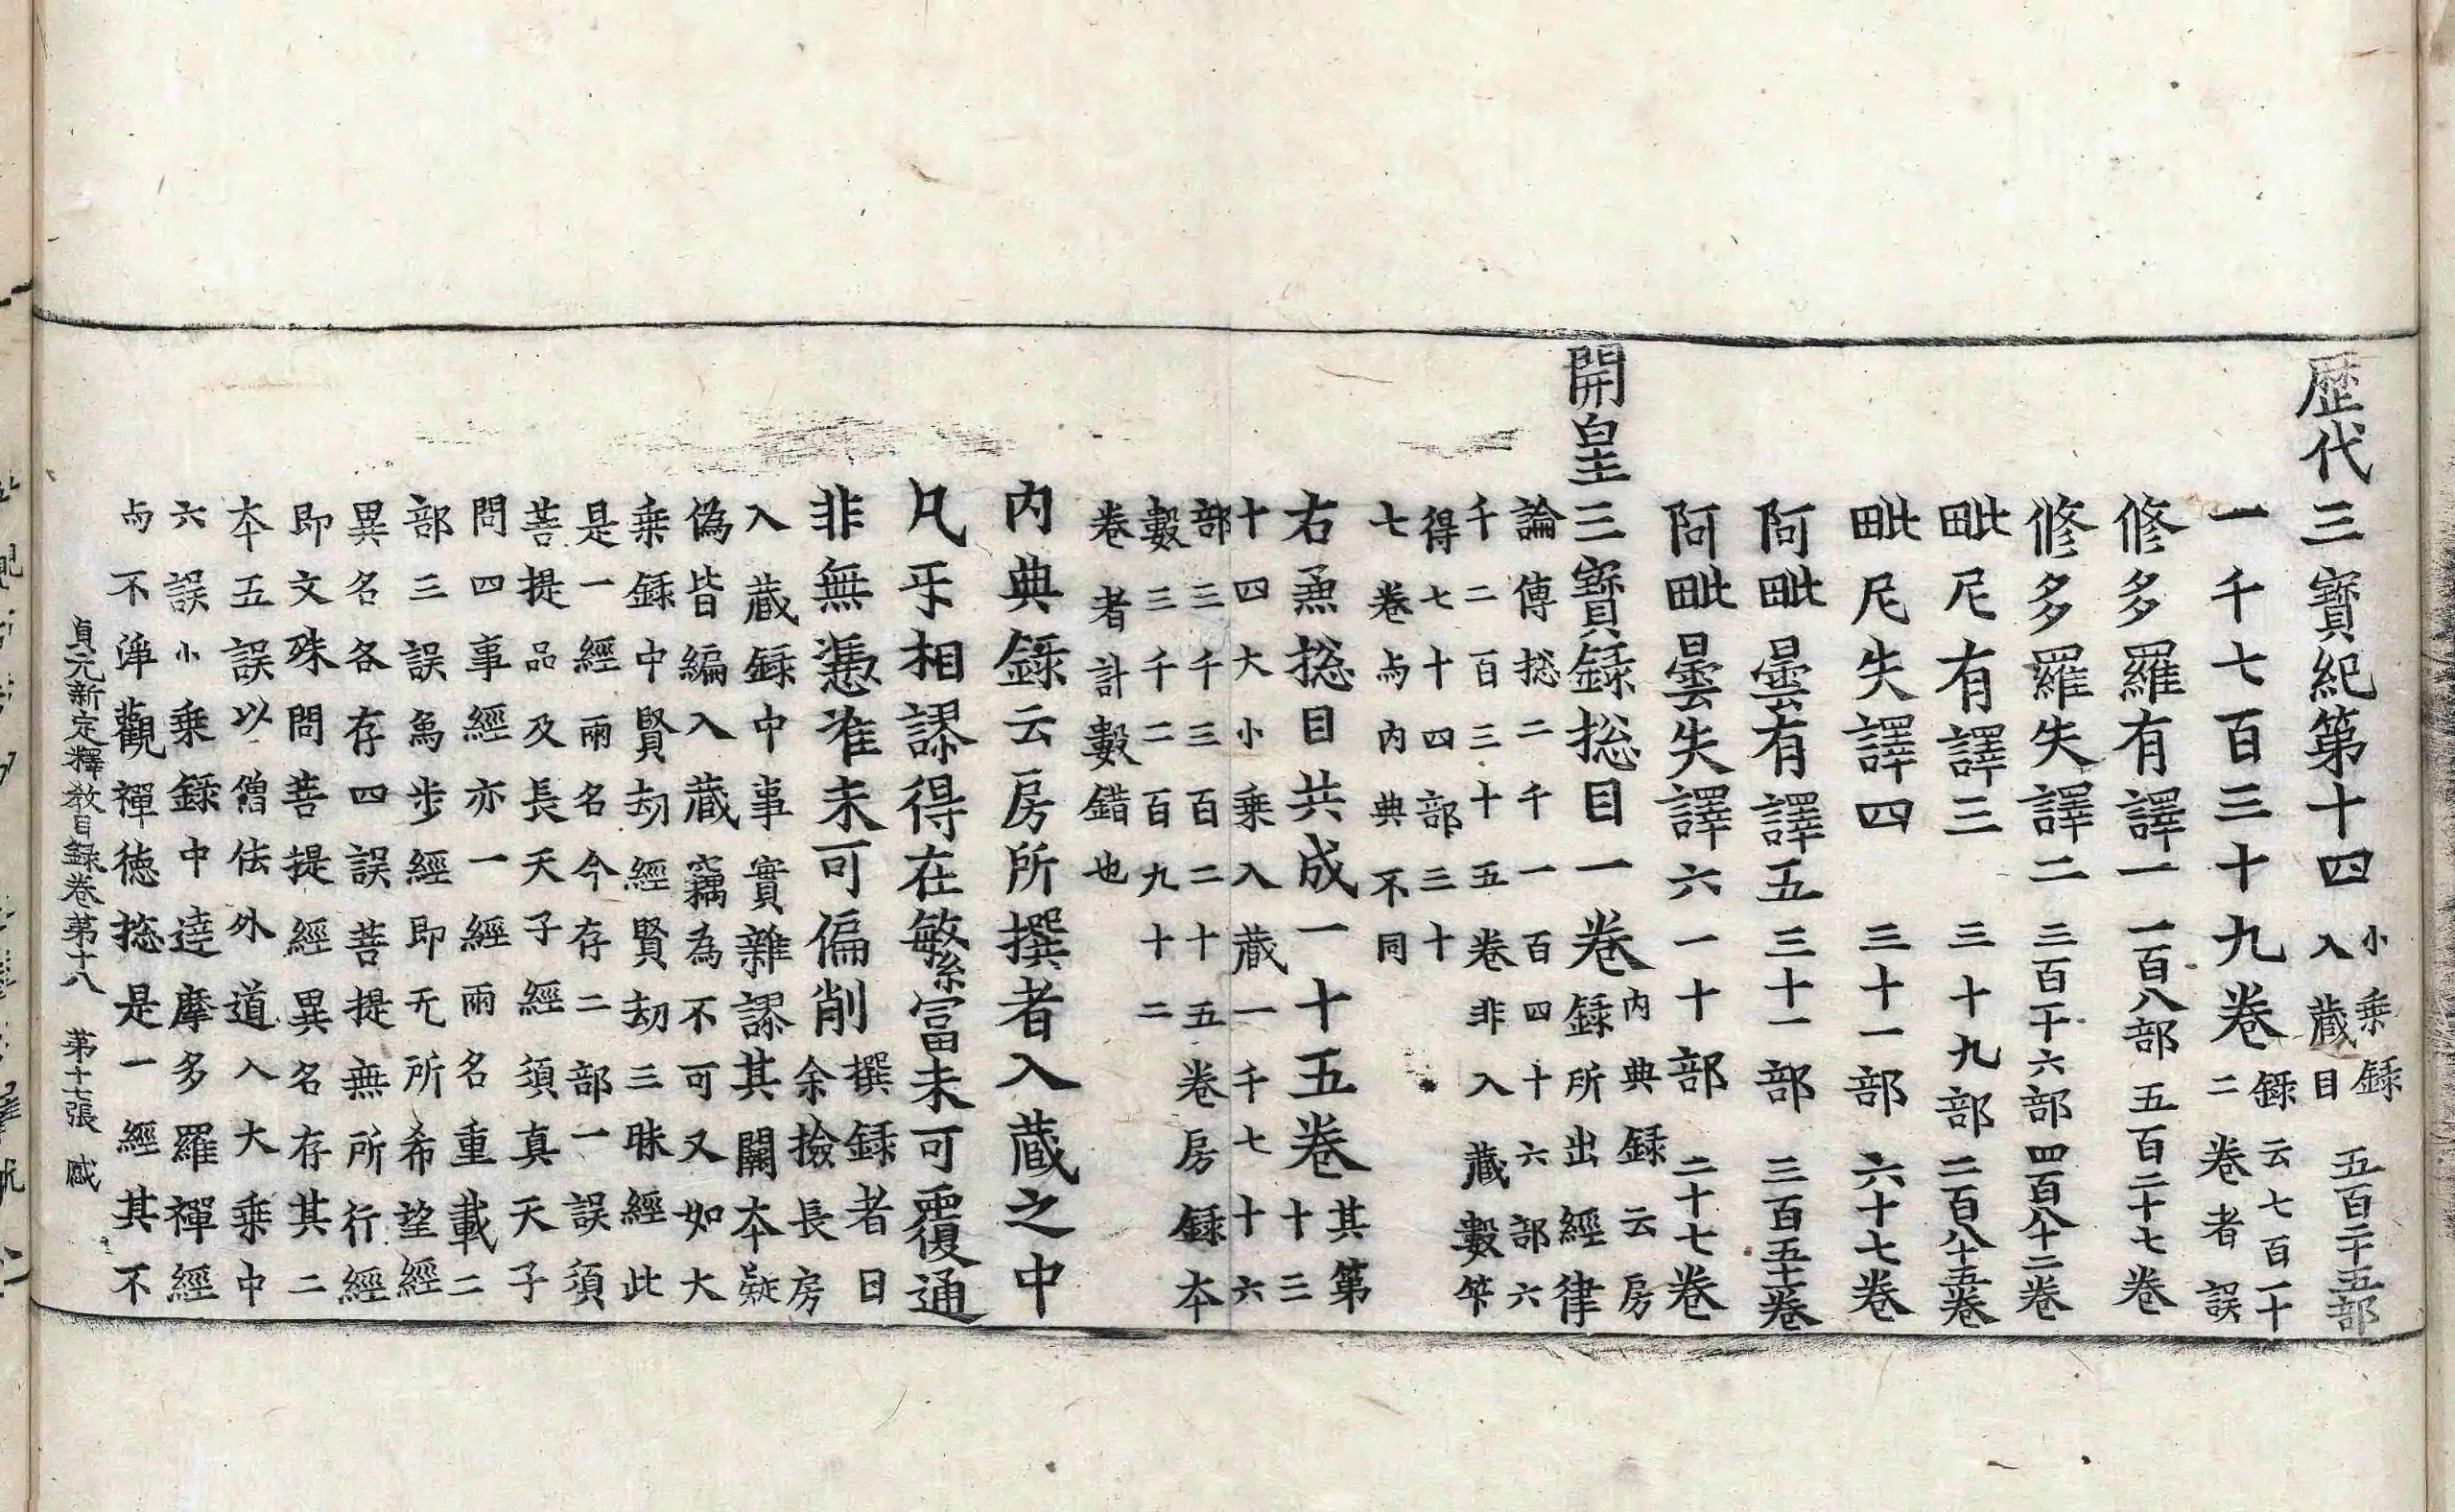 歷代三寶紀第十四 小乘錄入藏目 五百二十五部
一千七百三十九卷 錄云七百一十二卷者誤
修多羅有譯一 一百八部 五百二十七卷
修多羅失譯二 三百一十六部 四百八十二卷
毗尼有譯三 三十九部 二百八十五卷
毗尼失譯四 三十一部 六十七卷
阿毗曇有譯五 三十一部 三百五十一卷
阿毗曇失譯六 一十部 二十七卷
開皇三寶錄揔目一卷 內典錄云房錄所出經律
論傳揔二千一百四十六部六
千二百三十五卷非入藏數笇
得七十四部三十
七卷与內典不同
右兼揔目共成一十五卷 其第十三
十四大小乘入藏一千七十六
部三千三百二十五卷房錄本
數三千二百九十二
卷者計數錯也
內典錄云房所撰者入藏之中
凡乎相謬得在繁富未可覆通
非無憑准未可偏削 撰錄者曰余撿長房
入藏錄中事實雜謬其闕本疑
偽皆編入藏竊為不可又如大
乘錄中賢劫經賢劫三昧經此
是一經兩名今存二部一誤須
菩提品及長天子經須真天子
問四事經亦一經兩名重載二
部三誤鳥步經即无所希望經
異名各存四誤菩提無所行經
即文殊問菩提經異名存其二
本五誤以僧佉外道入大乘中
六誤小乘錄中達摩多羅禪經
与不淨觀禪德揔是一經其不
貞元新定釋教目錄卷第十八 第十七張